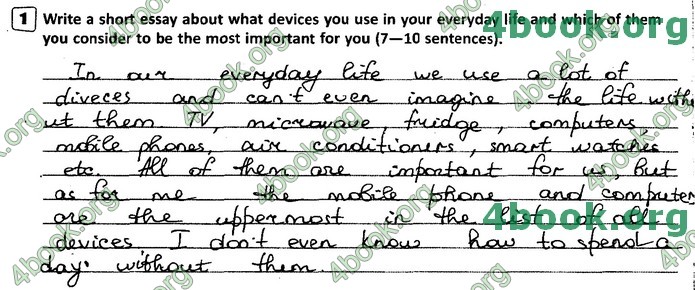 1 Write a short essay about what devices you use in your everyday life and which of them
you consider to be the most important for you (7—10 sentences).
In our everyday life we use a lot of
diveces and can't even imagine the life with
ut them TV, microwave fridge, computers,
mobile phones, air conditioners, smart watches
etc. All of them are important for us, but
as for me the mobile phone and computer
are the uppermost in the list of all
devices I don't even know how to spend a
day without them.
4book.org
4book.org
4book.org
4book.org
4book.org
4book.org